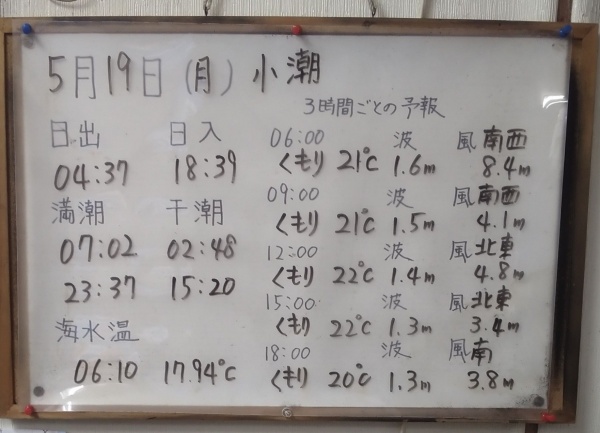 5月19日(月)小潮
3時間ごとの予報
日出 日入
04:37 18:39
満潮 干潮
07:02 02:48
23:37 15:20
海水温
06:10 17.94℃
06:00 波 風 南西
くもり 21℃ 1.6m 8.4m
09:00 波 風 南西
くもり 21℃ 1.5m 4.1m
12:00 波 風 北東
くもり 22℃ 1.4m 4.8m
15:00 波 風 北東
くもり 22℃ 1.3m 3.4m
18:00 波 風 南
くもり 20℃ 1.3m 3.8m